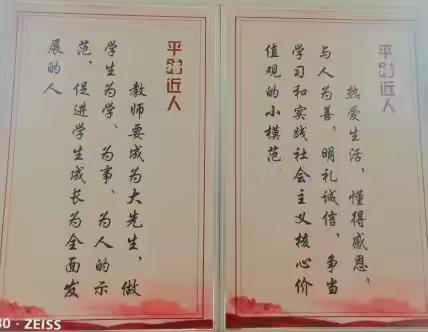 平近人
教师要成为大先生，做
学生为学、为事、为人的示
范，促进学生成长为全面发
展的人
平近人
热爱生活，懂得感恩，
与人为善，明礼诚信，争当
学习和实践社会主义核心价
值观的小模范。
30 · ZEISS